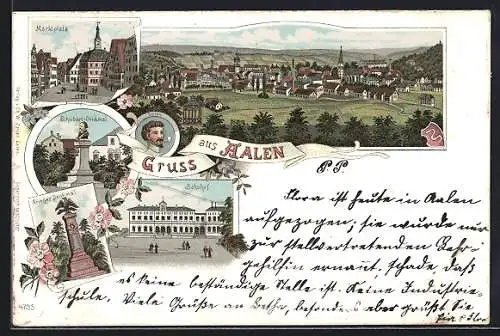 Marktplatz
Schubart-Denkmal
Gruss
aus AALEN
Bahnhof
Krieger-Denkmal
4735
P.P.
Flora ist heute in Aalen
aufgezogen; sie wurde nur
zur stellvertretenden Lehr-
gehilfin ernannt, schade daß
es keine beständige Stelle ist. Keine Industrie-
schule. Viele Grüße an Bertha, besonders aber grüßt Sie